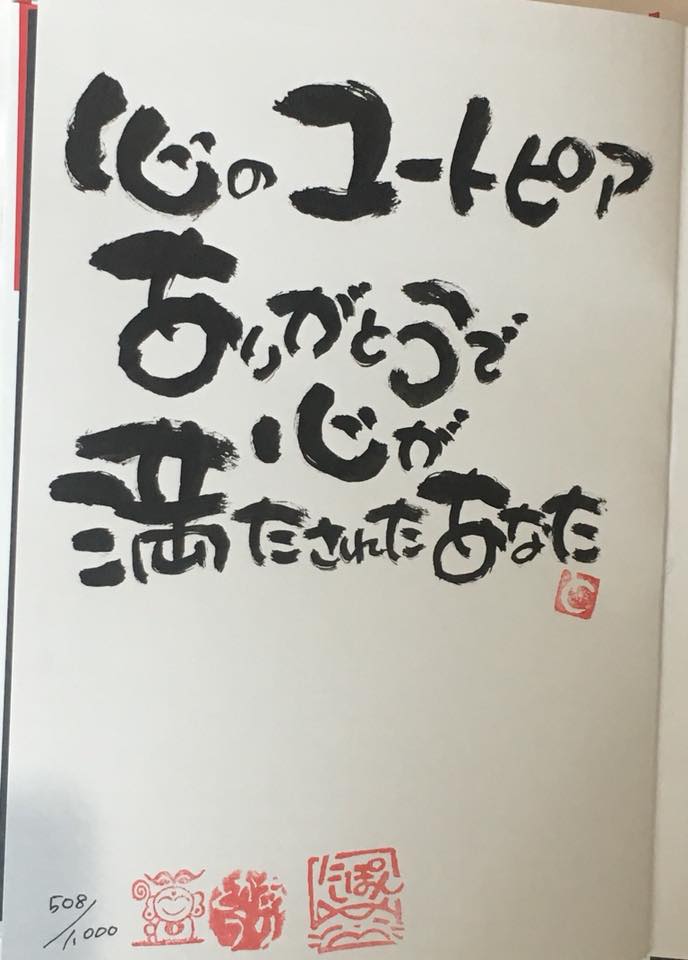 心のユートピア
ありがとうで
心が
満たされたあなた
508/1,000
にっぽん